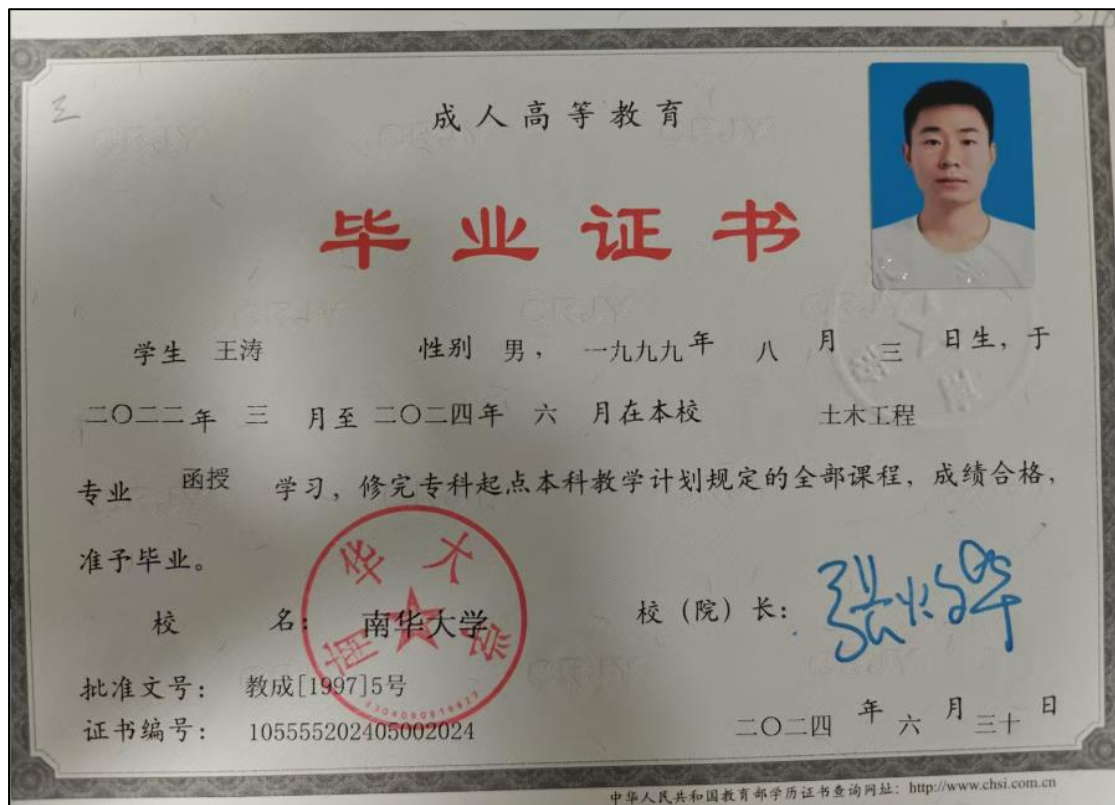 成人高等教育
毕业证书
学生 王涛 性别 男， 一九九九 年 八 月 三 日生，于
二〇二二年 三 月至 二〇二四年 六 月在本校 土木工程
专业 函授 学习，修完专科起点本科教学计划规定的全部课程，成绩合格，
准予毕业。
南华大学
校 名： 南华大学 校（院）长：
批准文号： 教成[1997]5号
证书编号： 105555202405002024
二〇二四 年 六 月 三十 日
中华人民共和国教育部学历证书查询网址：http://www.chsi.com.cn